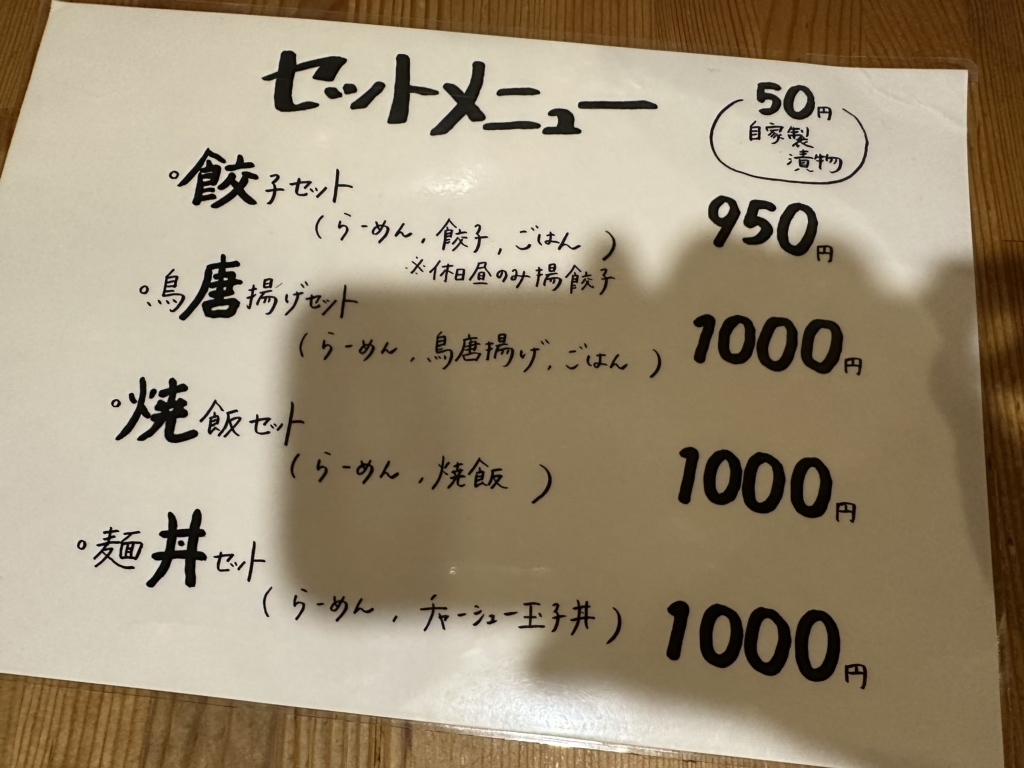 セットメニュー
50円
自家製
漬物
餃子セット
950円
(らーめん,餃子,ごはん)
※休日昼のみ揚餃子
鳥唐揚げセット
1000円
(らーめん,鳥唐揚げ,ごはん)
焼飯セット
1000円
(らーめん,焼飯)
麺丼セット
1000円
(らーめん,チャーシュー玉子丼)